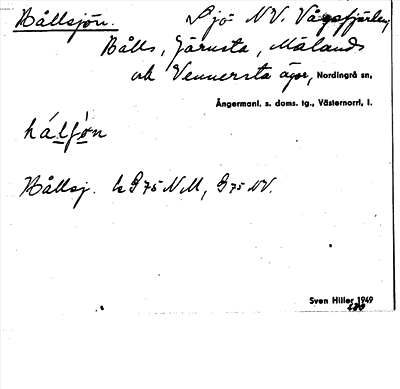 Hållsjön. Sjö NV. Vågsfjärden,
Hålls, Järnsta, Mälands
och Vennersta ägor, Nordingrå sn,
Ångermanl. s. doms. tg., Västernorrl. l.
hálſo̱n
Hållsj. G75NM, G75NV.
Sven Hiller 1949